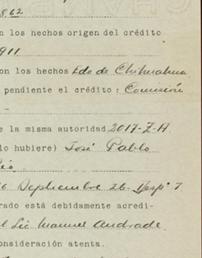 862
n los hechos origen del crédito
911
on los hechos Edo de Chihuahua
pendiente el crédito: Comisión
e la misma autoridad 2017-Z-A
lo hubiere) José Pablo
6 Septiembre 26. Desp° 7
rado está debidamente acredi-
l Lic Manuel Andrade
onsideración atenta.